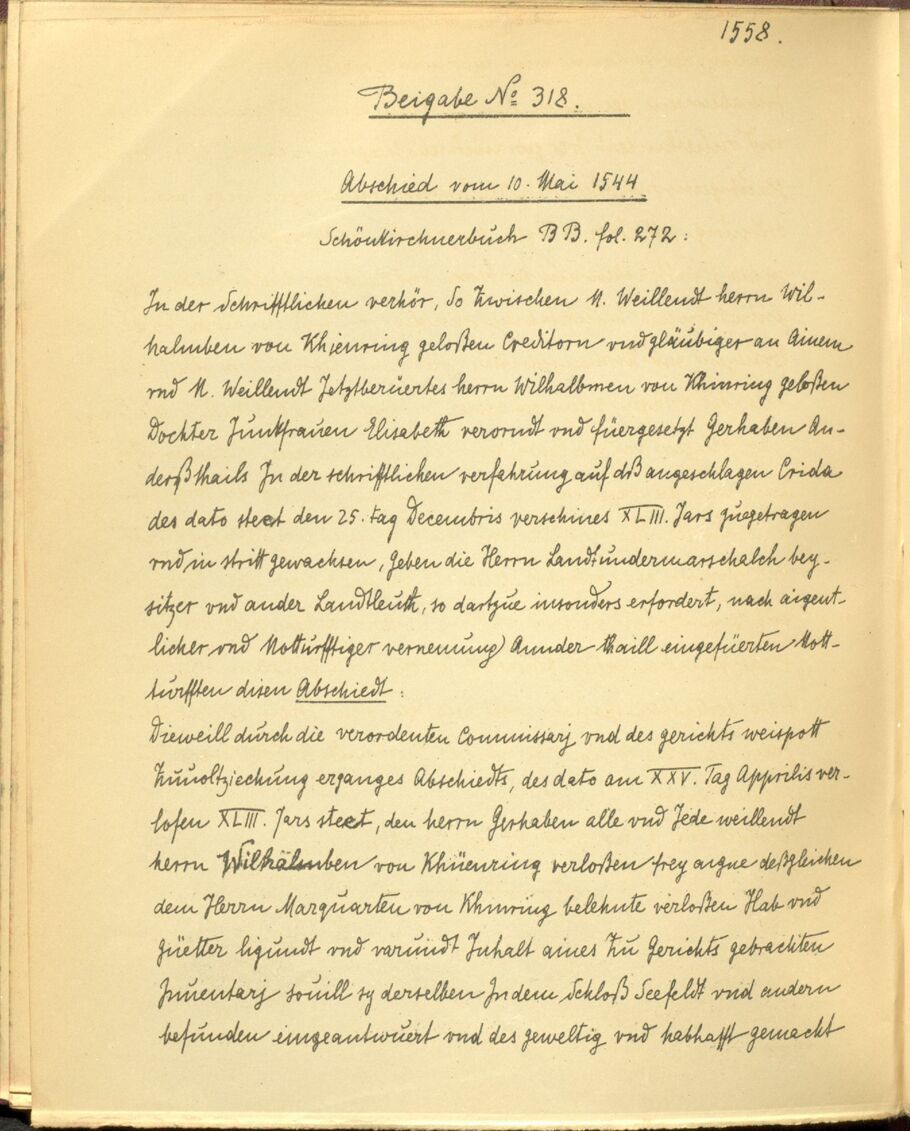 1558.
Beigabe No 318.
Abschied vom 10. Mai 1544
Schönkirchnerbuch BB. fol. 272:
In der Schrifftlichen verhör, So Zwischen N. Weillendt herrn Wil-
halmben von Khienring geloßen Creditorn vnd gläubiger an Ainem
vnd N. Weillendt Jetztberüertes herrn Wilhalbmen von Khinring geloßen
Dochter Junkfrauen Elisabeth verorndt vnd füergesetzt Gerhaben An-
derßthails In der schrifftlichen verfahrung auf dß angeschlagen Crida
des dato steet den 25. tag Decembris verschines XLIII. Jars zuegetragen
vnd in stritt gewachsen, Geben die Herrn Landtundermarschalch bey-
sitzer vnd ander Landleuth, so dartzue insonders erfordert, nach aigent-
licher vnd Notturfftiger vernemung Annder thaill eingefüerten Nott-
turfften disen Abschiedt:
Dieweill durch die verordenten Commissarj vnd des gerichts weispott
Zuuoltziechung erganges Abschiedts, des dato am XXV. Tag Apprilis ver-
lofen XLIII. Jars steet, den herrn Gerhaben alle vnd Jede weillendt
herrn Wilhälmben von Khüenring verloßen frey aigne deßgleichen
dem Herrn Marquarten von Khinring belehnte verloßen Hab vnd
Güetter ligundt vnd varundt Inhalt aines Zu Gerichts gebrachten
Inuentarj souill sy derselben In dem Schloß Seefeldt vnd andern
befunden eingeantwuert vnd des geweltig vnd habhafft gemacht